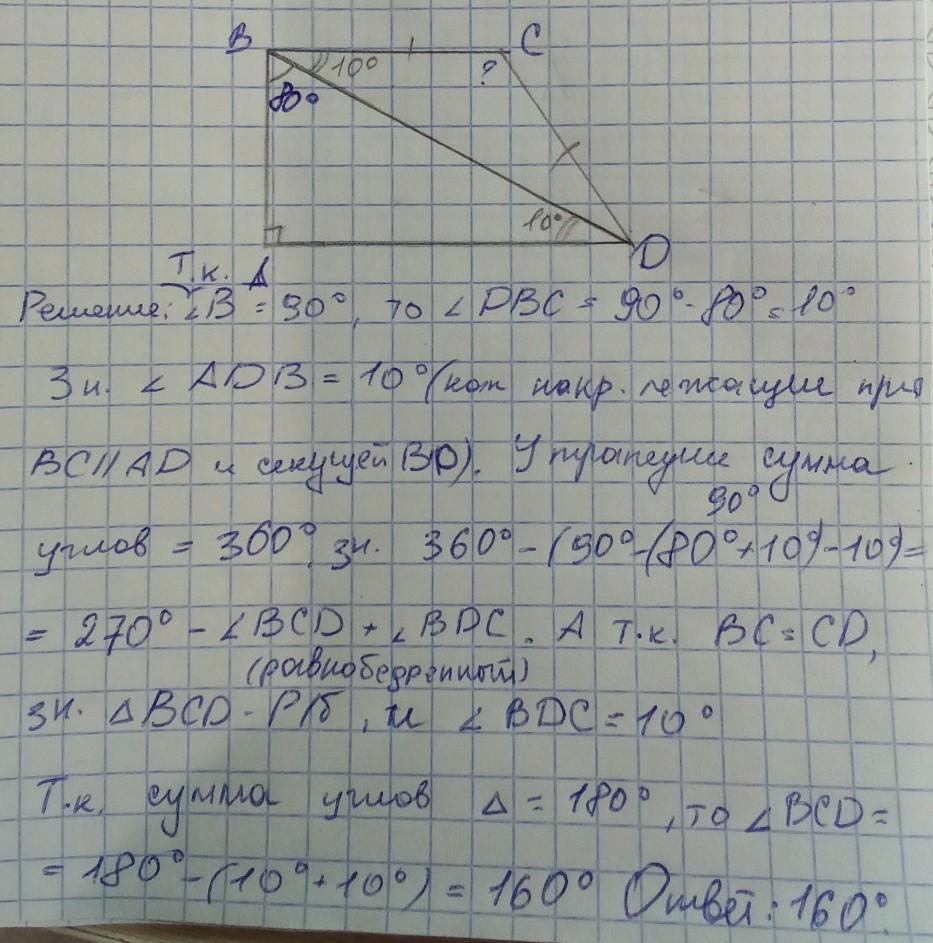 B C
10° ?
80°
10°
A D
Т.к.
Решение: ∠B = 90°, то ∠DBC = 90° - 80° = 10°
Зн. ∠ADB = 10° (как накр. лежащие при
BC || AD и секущей BD). У трапеции сумма
90°
углов = 360°, зн. 360° - (90° - (80° + 10°) - 10°) =
= 270° - ∠BCD + ∠BDC. А т.к. BC = CD,
(равнобедренный)
зн. △BCD - Р/б, и ∠BDC = 10°
Т.к. сумма углов △ = 180°, то ∠BCD =
= 180° - (10° + 10°) = 160° Ответ: 160°.